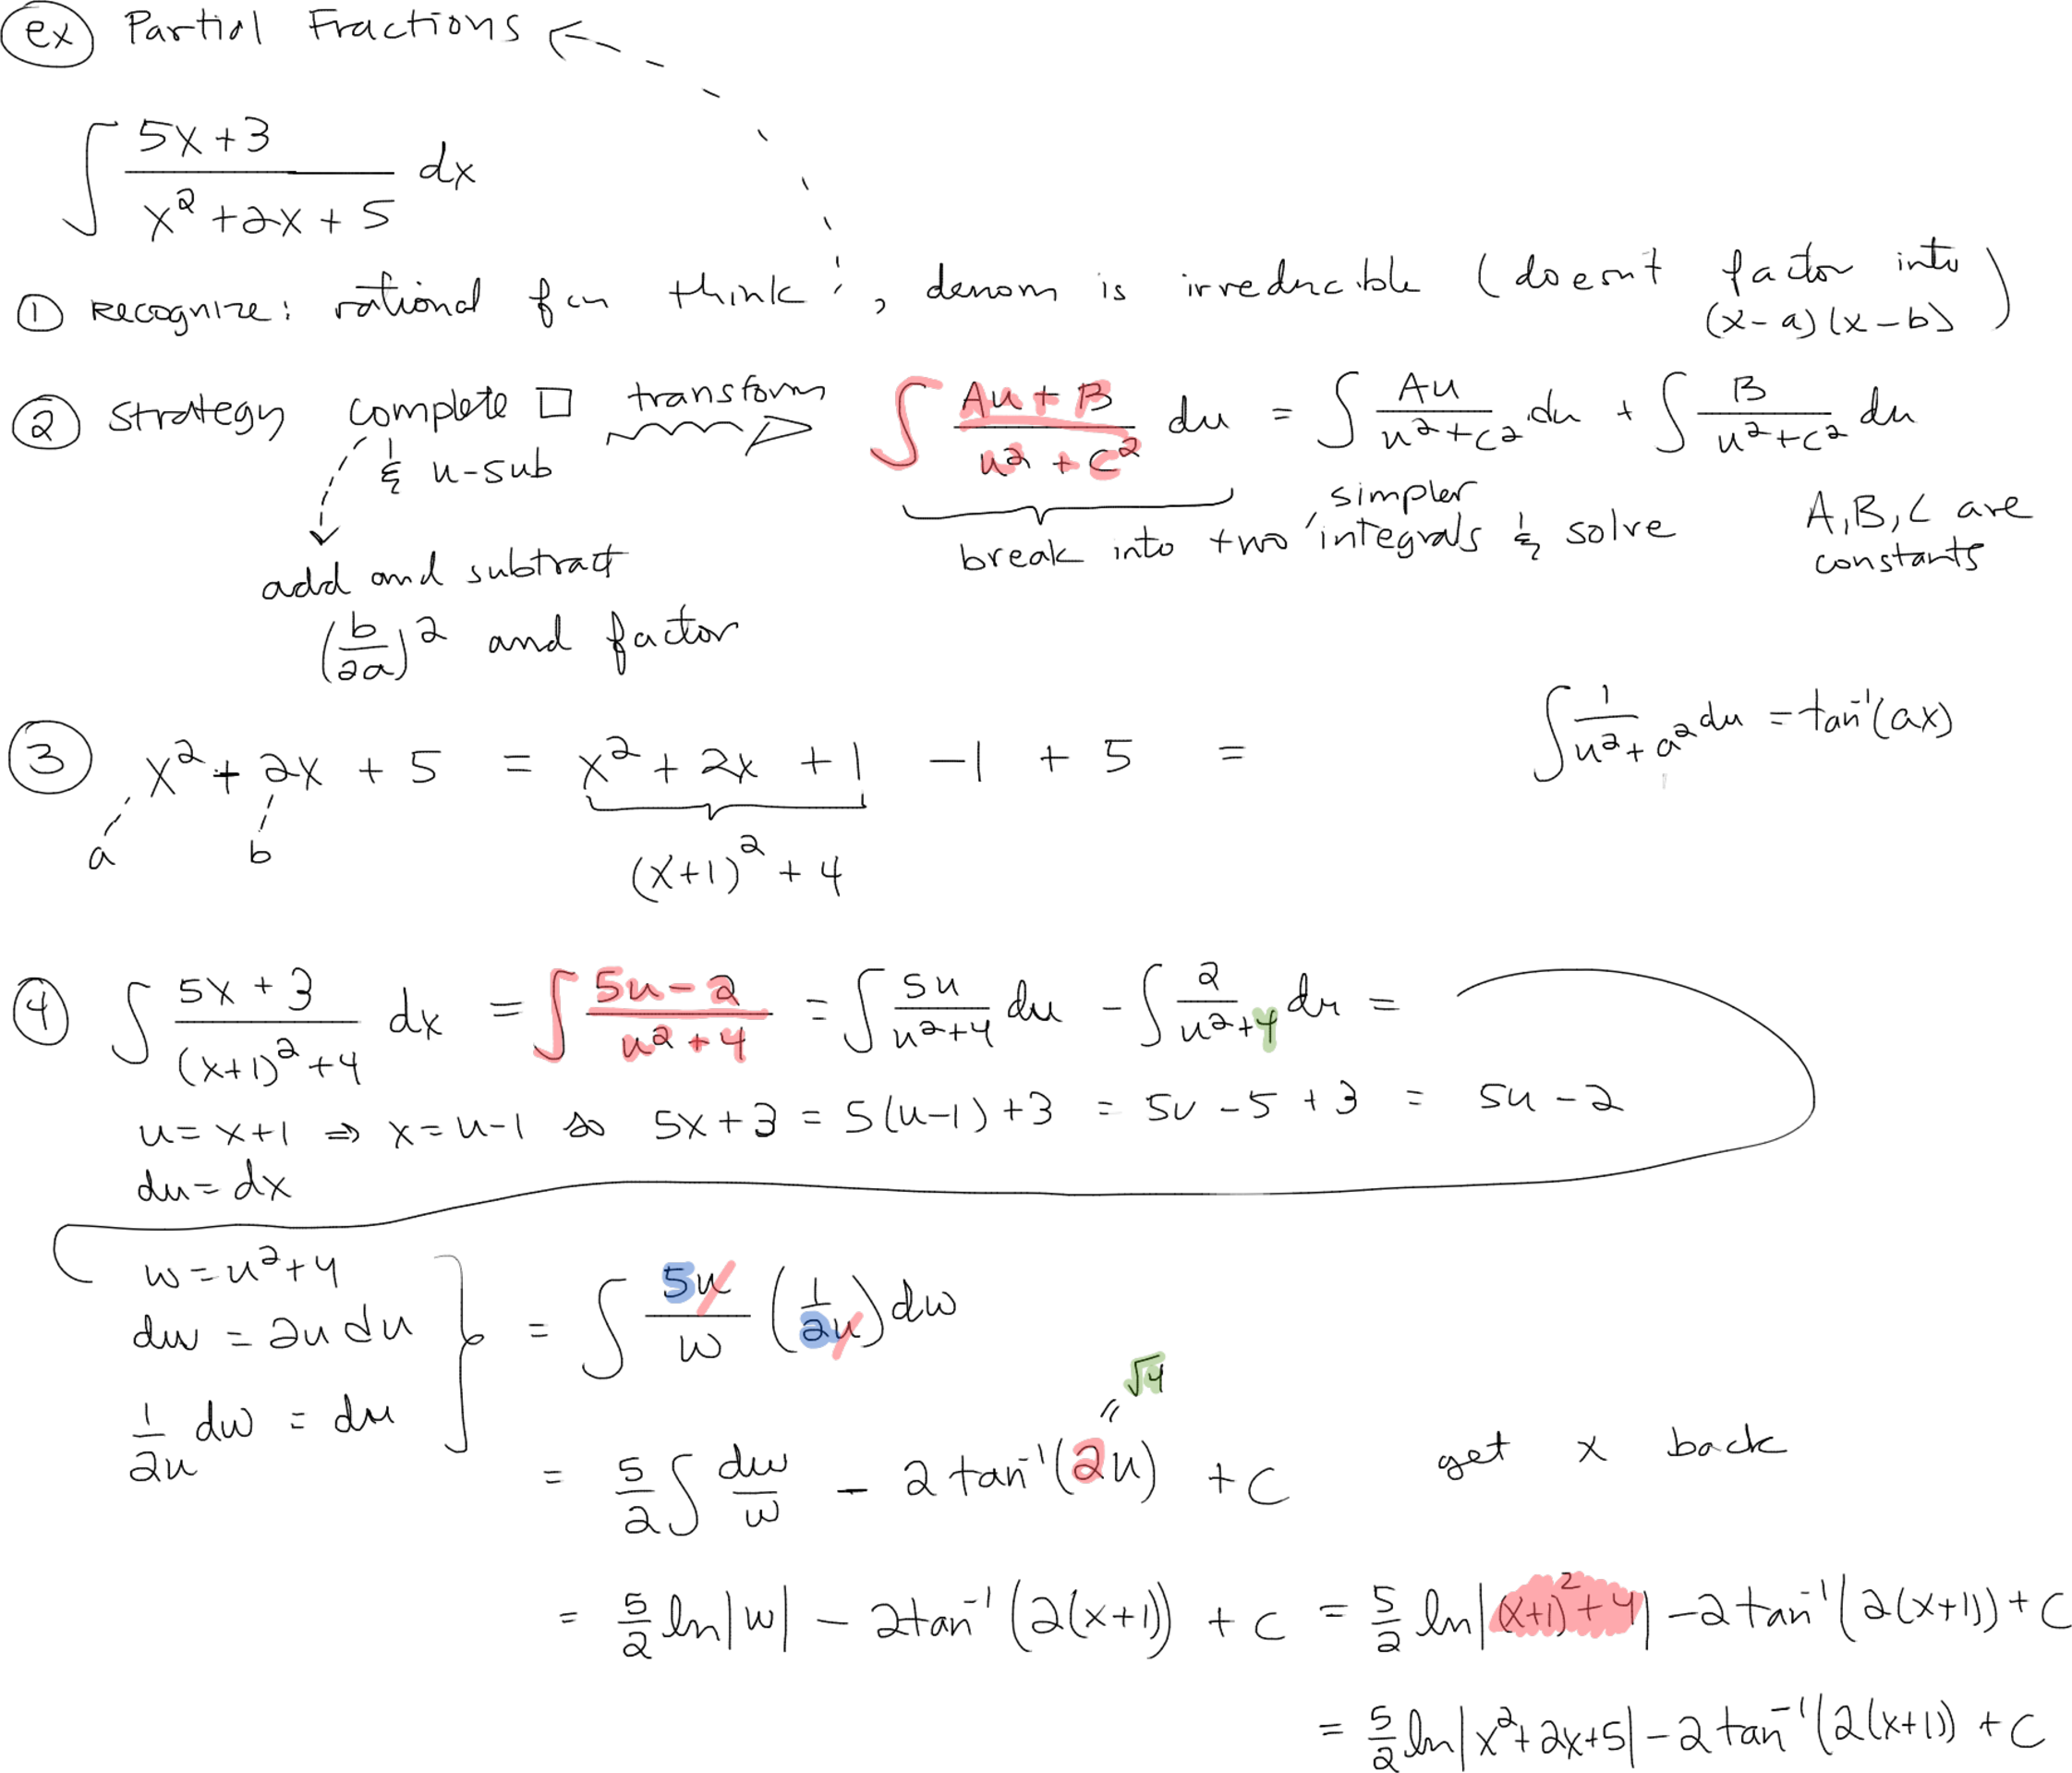 ex Partial Fractions
∫ (5x+3)/(x²+2x+5) dx
① Recognize: rational fcn think , denom is irreducible (doesn't factor into (x-a)(x-b))
② Strategy complete □ & u-sub transform ∫ (Au+B)/(u²+c²) du = ∫ Au/(u²+c²) du + ∫ B/(u²+c²) du
break into two simpler integrals & solve
A,B,C are constants
add and subtract
(b/2a)² and factor
∫ 1/(u²+a²) du = tan⁻¹(ax)
③ x²+2x+5 = x²+2x+1 -1 +5 =
a b
(x+1)²+4
④ ∫ (5x+3)/((x+1)²+4) dx = ∫ (5u-2)/(u²+4) = ∫ 5u/(u²+4) du - ∫ 2/(u²+4) du =
u=x+1 ⇒ x=u-1 so 5x+3 = 5(u-1)+3 = 5u-5+3 = 5u-2
du=dx
w=u²+4
dw = 2u du
1/(2u) dw = du
= ∫ 5u/w (1/(2u)) dw
= √4
= 5/2 ∫ dw/w - 2 tan⁻¹(2u) + C get x back
= 5/2 ln|w| - 2tan⁻¹(2(x+1)) + C = 5/2 ln|(x+1)²+4| - 2tan⁻¹(2(x+1)) + C
= 5/2 ln|x²+2x+5| - 2 tan⁻¹(2(x+1)) + C